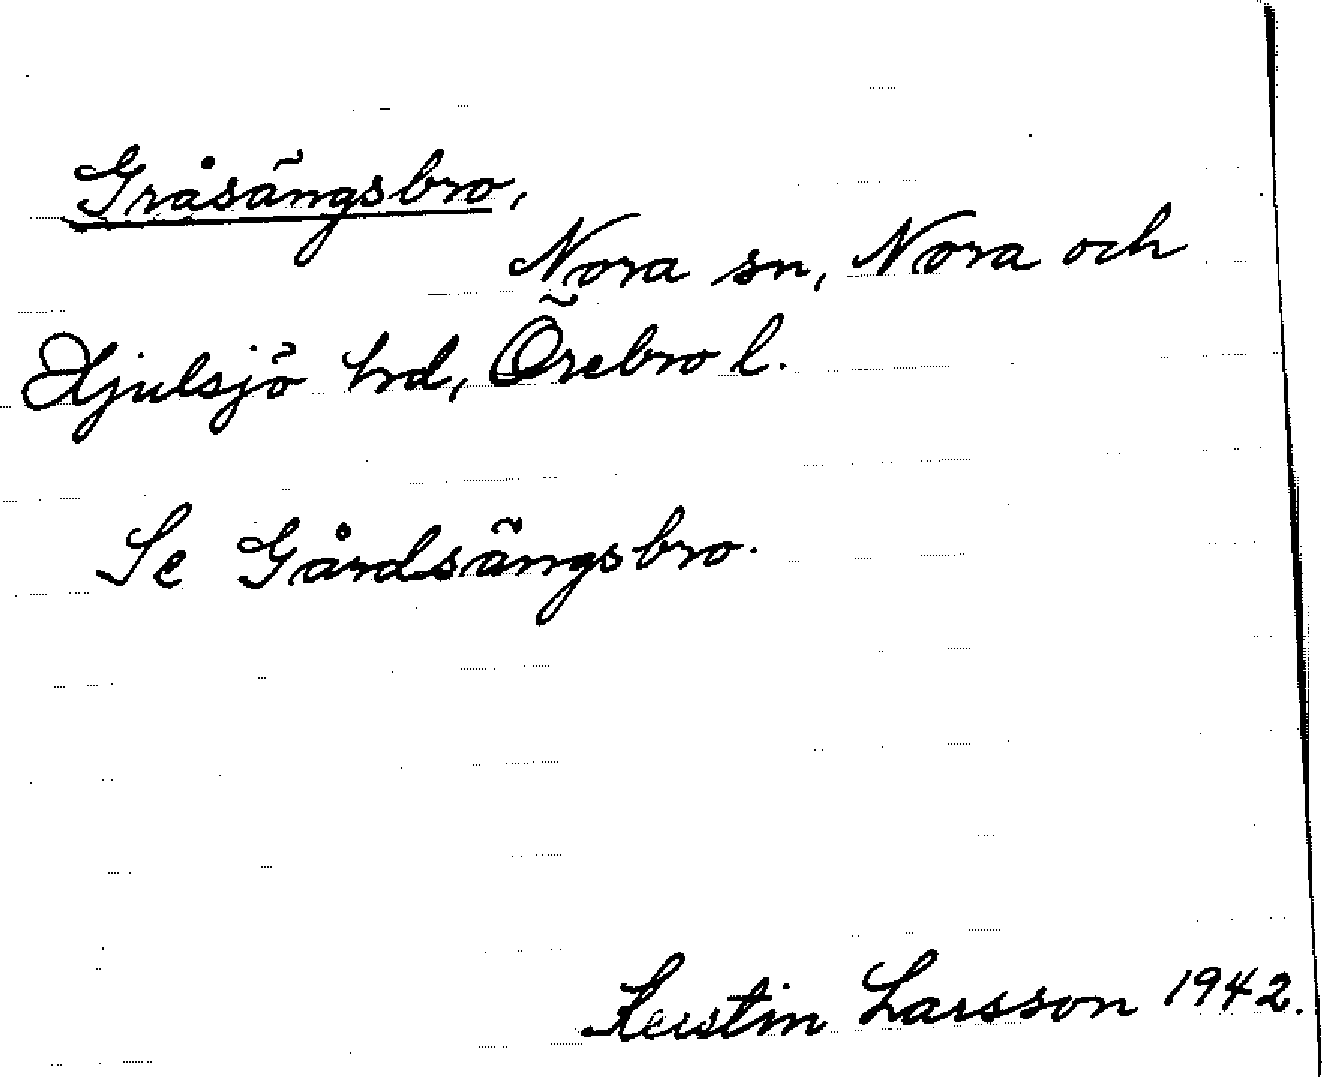 Gråsängsbro,
Nora sn, Nora och
Hjulsjö hrd, Örebro l.
Se Gårdsängsbro.
Kerstin Larsson 1942.